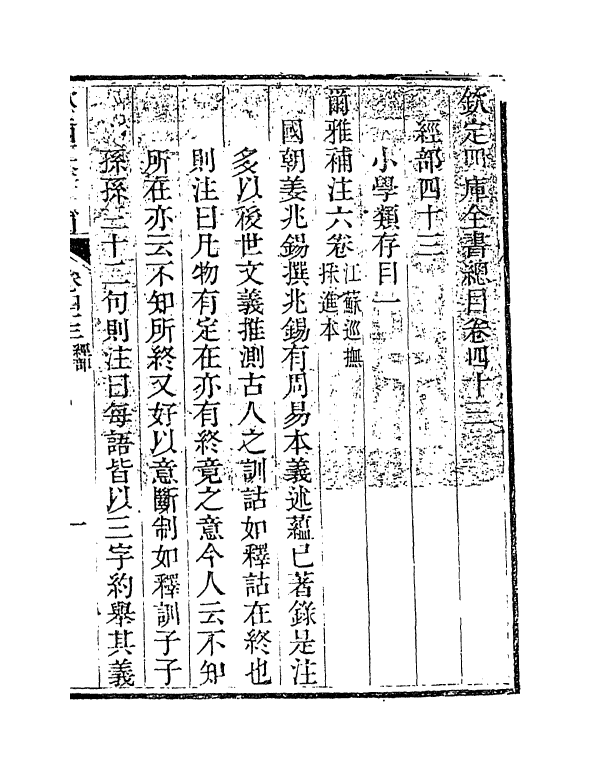 欽定四庫全書總目卷四十三
經部四十三
小學類存目一
爾雅補注六卷江蘇巡撫採進本
國朝姜兆錫撰兆錫有周易本義述蘊已著錄是注
多以後世文義推測古人之訓詁如釋詁在終也
則注曰凡物有定在亦有終竟之意今人云不知
所在亦云不知所終又好以意斷制如釋訓子子
孫孫三十二句則注曰每語皆以三字約舉其義
卷四十三 經部
一